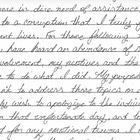 here is dire need of assistance
to a corruption that I truly
ent lives. For those following
have heard an abundance of
volvement, my motives and the
to what I did. My purpose
t to address those topics or
ly wish to apologize to the indi
that unfortunate day, and
for any emotional trauma